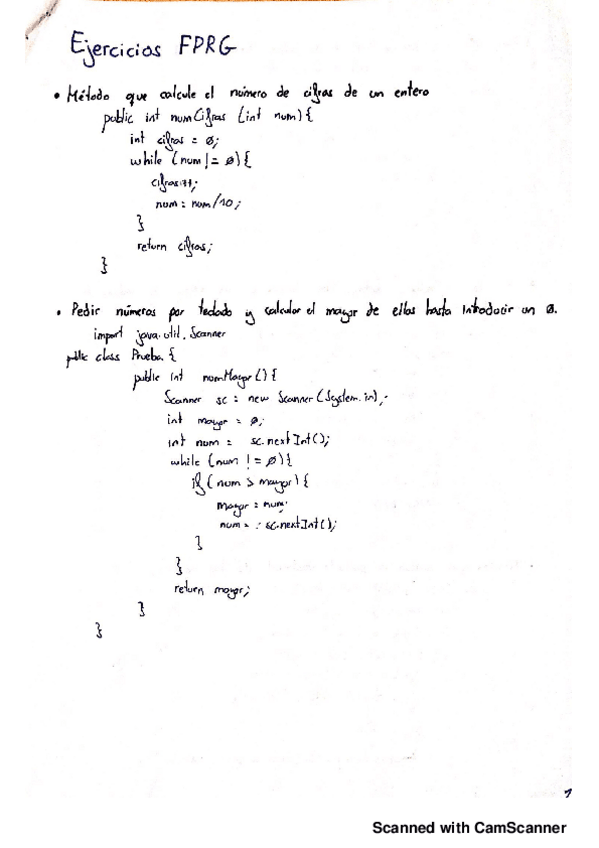 Ejercicios FPRG
• Método que calcule el número de cifras de un entero
public int numCifras (int num) {
int cifras = 0;
while (num != 0) {
cifras++;
num = num/10;
}
return cifras;
}
• Pedir números por teclado y calcular el mayor de ellos hasta introducir un 0.
import java.util.Scanner
public class Prueba {
public int numMayor() {
Scanner sc = new Scanner (System.in);
int mayor = 0;
int num = sc.nextInt();
while (num != 0) {
if (num > mayor) {
mayor = num;
num = sc.nextInt();
}
}
return mayor;
}
}
1
Scanned with CamScanner